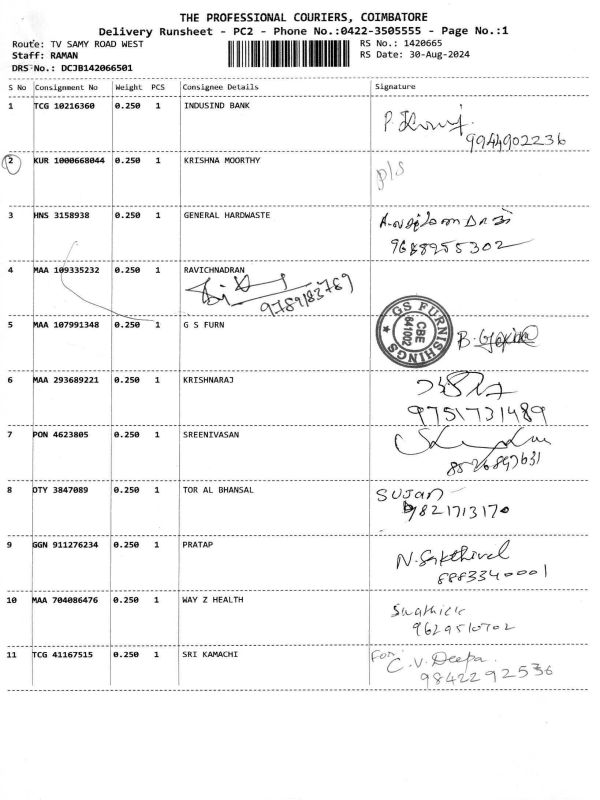 THE PROFESSIONAL COURIERS, COIMBATORE
Delivery Runsheet - PC2 - Phone No.:0422-3505555 - Page No.:1
Route: TV SAMY ROAD WEST RS No.: 1420665
Staff: RAMAN RS Date: 30-Aug-2024
DRS No.: DCJB142066501
S No Consignment No Weight PCS Consignee Details Signature
1 TCG 10216360 0.250 1 INDUSIND BANK
9944902236
2 KUR 1000668044 0.250 1 KRISHNA MOORTHY
P/S
3 HNS 3158938 0.250 1 GENERAL HARDWASTE
9688955302
4 MAA 109335232 0.250 1 RAVICHNADRAN
9789183789
5 MAA 107991348 0.250 1 G S FURN
GS FURNISHINGS
CBE
641002
B.
6 MAA 293689221 0.250 1 KRISHNARAJ
9751731489
7 PON 4623805 0.250 1 SREENIVASAN
8526897631
8 OTY 3847089 0.250 1 TOR AL BHANSAL
SUJAN
9821713170
9 GGN 911276234 0.250 1 PRATAP
N. Sakthivel
8883340001
10 MAA 704086476 0.250 1 WAY Z HEALTH
9629510702
11 TCG 41167515 0.250 1 SRI KAMACHI
For:
C.V. Deepa.
9842292536